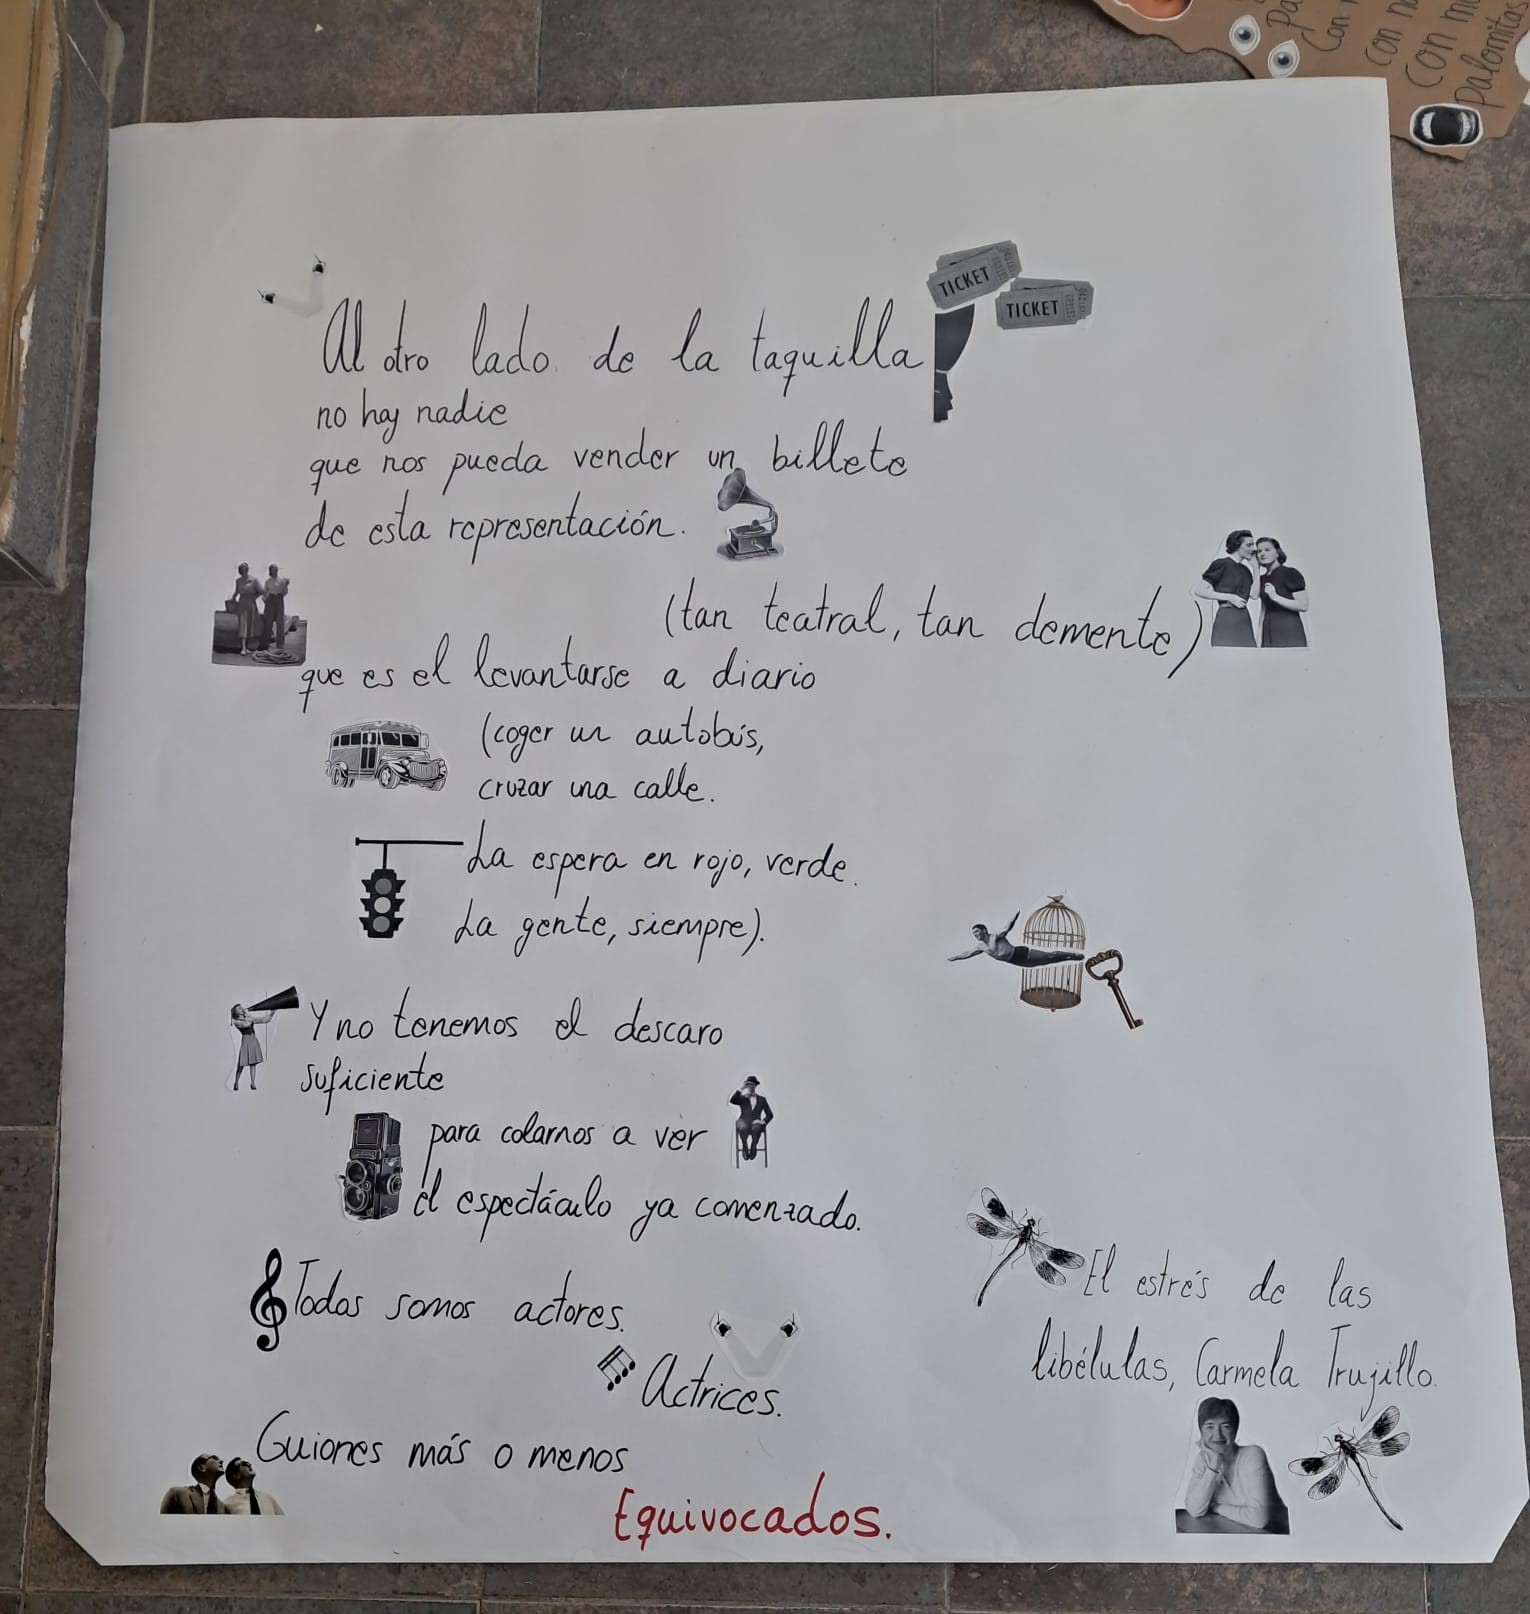 TICKET
TICKET
Al otro lado de la taquilla
no hay nadie
que nos pueda vender un billete
de esta representación.
(tan teatral, tan demente)
que es el levantarse a diario
(coger un autobús,
cruzar una calle.
La espera en rojo, verde.
La gente, siempre).
Y no tenemos el descaro
suficiente
para colarnos a ver
el espectáculo ya comenzado.
Todos somos actores.
Actrices.
Guiones más o menos
Equivocados.
El estrés de las
libélulas, Carmela Trujillo.
con
con
palomitas